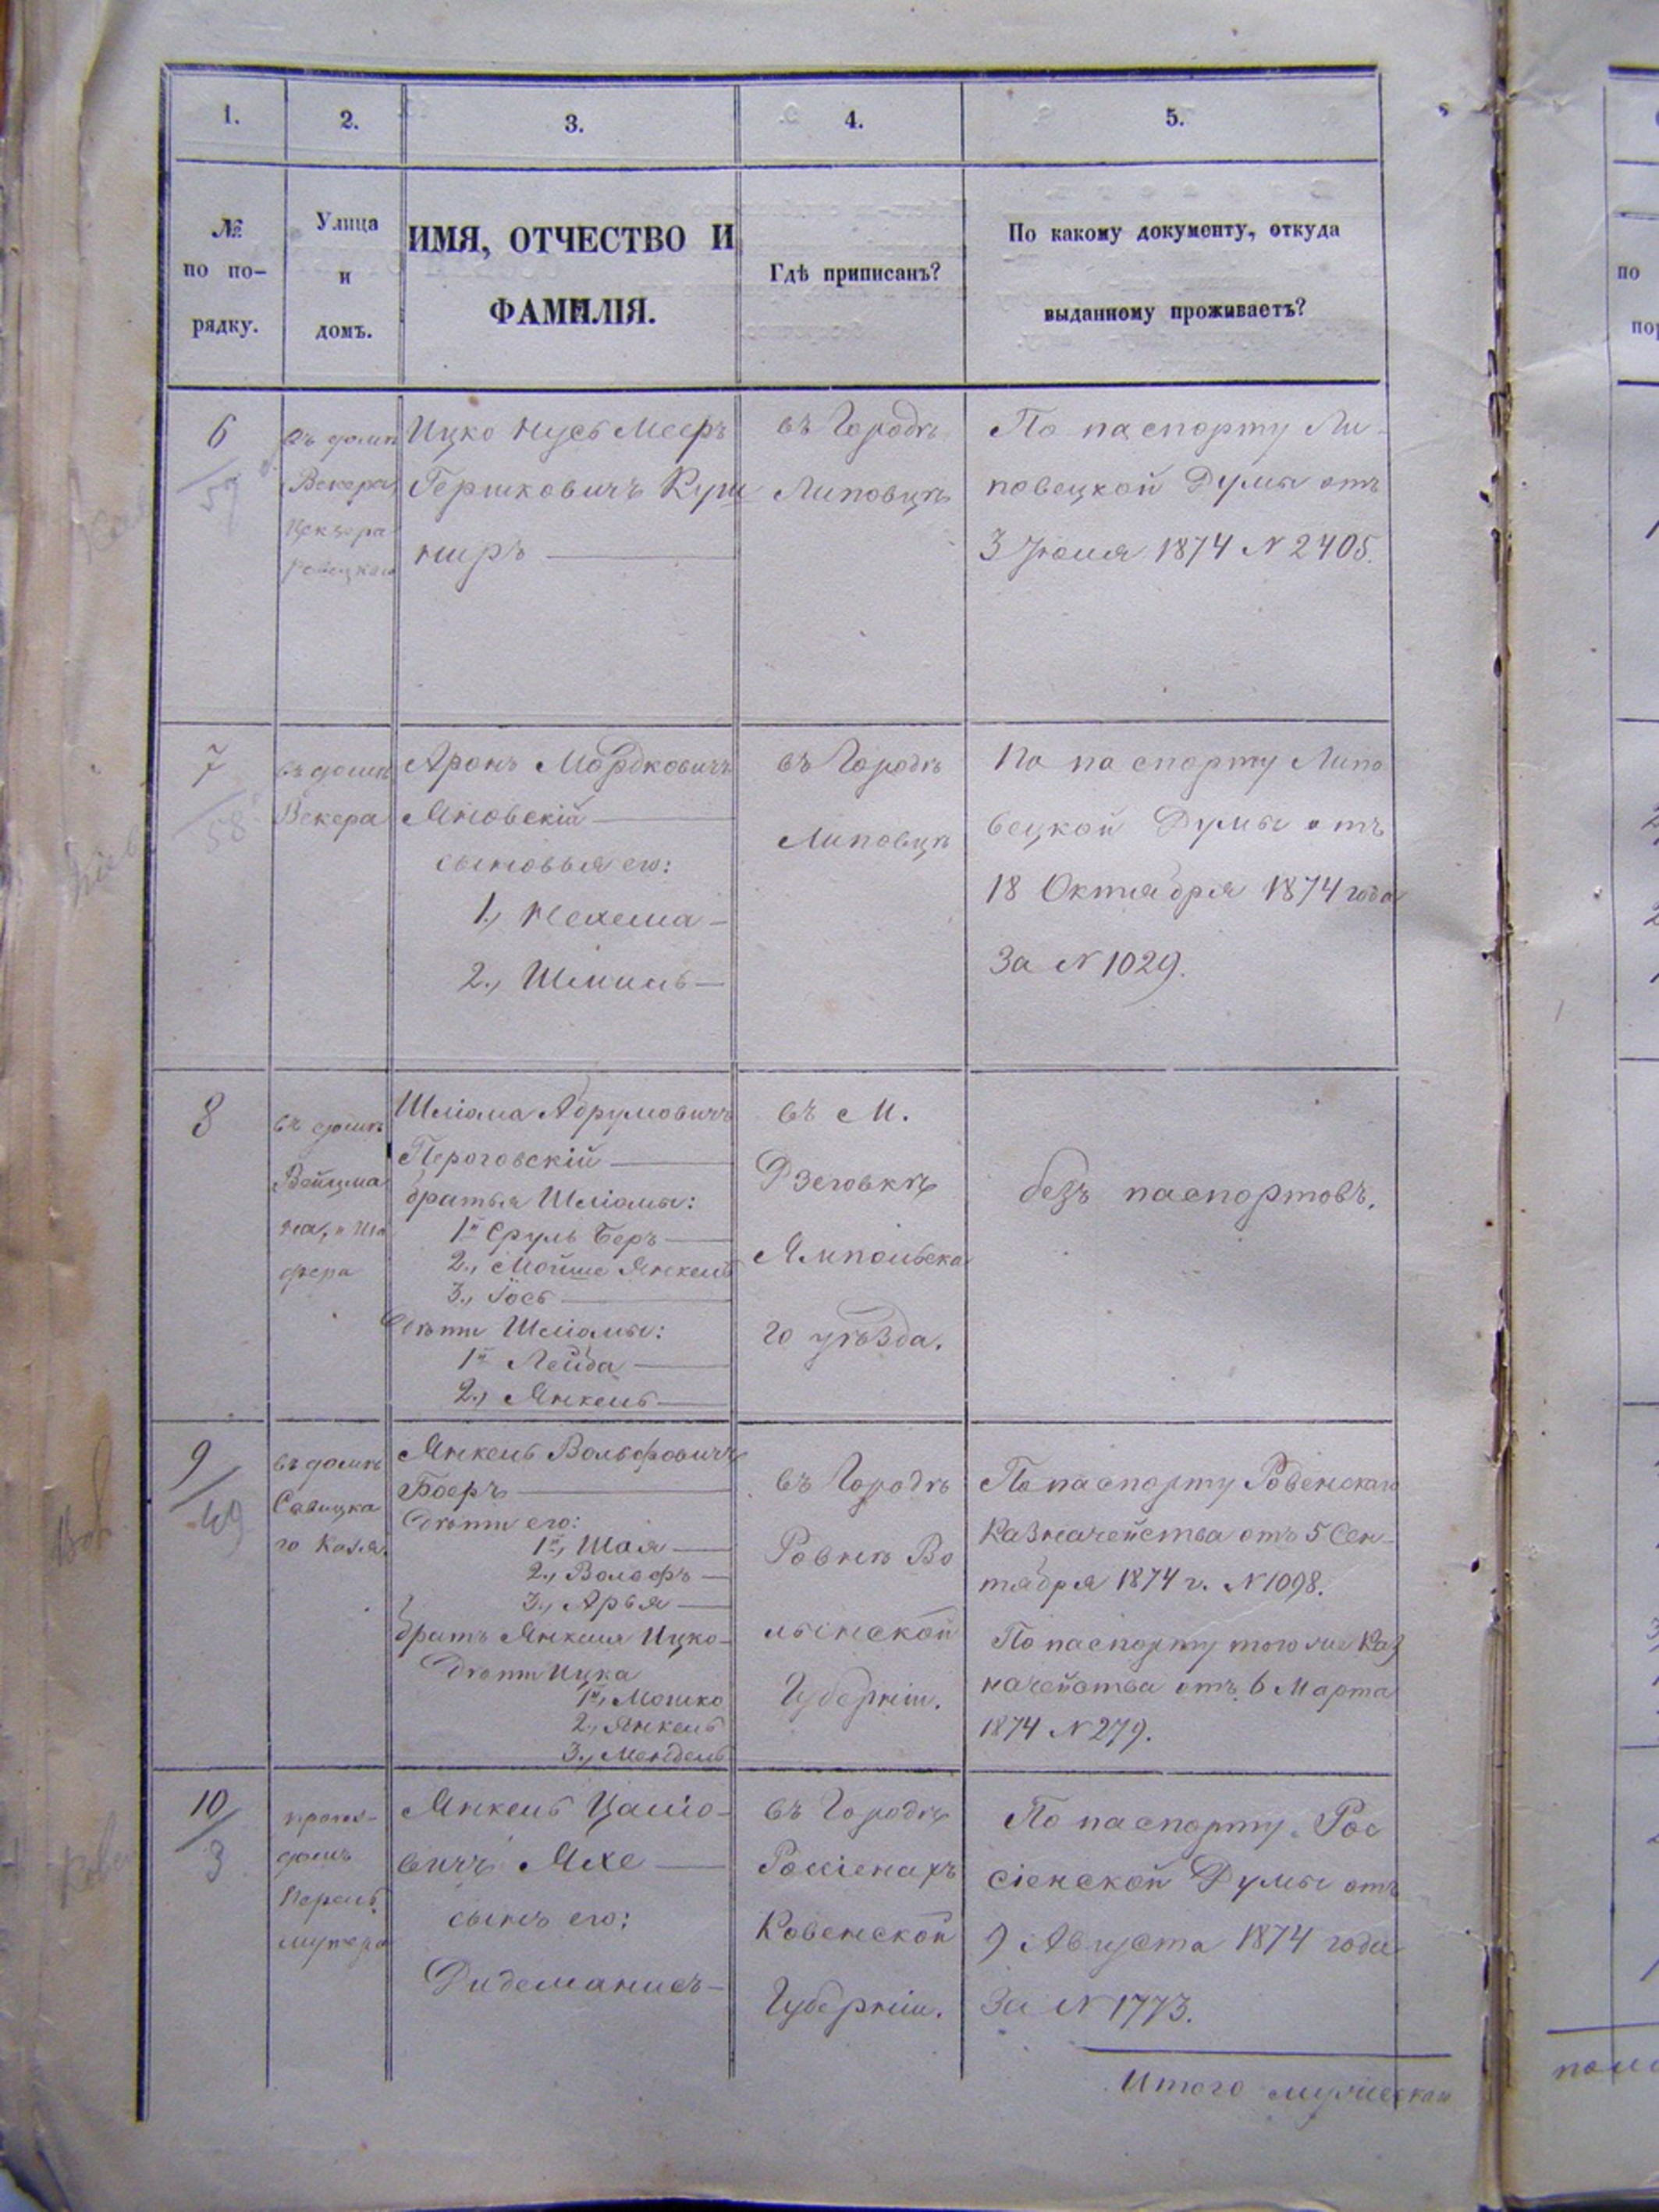 1.
2.
3.
4.
5.
№
по по-
рядку.
Улица
и
домъ.
ИМЯ, ОТЧЕСТВО И
ФАМИЛІЯ.
Гдѣ приписанъ?
По какому документу, откуда
выданному проживаетъ?
6
59
въ домѣ
Векера
Ицко Нусь Мееръ
Гершковичъ Куш
ниръ
въ Городѣ
Липовцѣ
По паспорту Ли-
повецкой Думы отъ
3 Іюля 1874 N 2405.
7
58
въ домѣ
Векера
Аронъ Мордковичъ
Яновскій
сыновья его:
1., Нехема
2., Шмиль
въ Городѣ
Липовцѣ
По паспорту Липо
вецкой Думы отъ
18 Октября 1874 года
За N 1029.
8
въ домѣ
Вейцма
на, и Ша
фера
Шліома Абрумовичъ
Пероговскій
братья Шліомы:
1й Сруль Беръ
2., Мойше Янкель
3., Іось
Дѣти Шліомы:
1й Лейба
2., Янкель
въ М.
Дзеговкѣ
Ямпольска
го уѣзда.
безъ паспортовъ.
9
49
въ домѣ
Савицка
го Казя.
Янкель Вольфовичъ
Боеръ
Дѣти его:
1й, Шая
2., Вольфъ
3., Арья
братъ Янкеля Ицко
Дѣти Ицка
1й, Мошко
2., Янкель
3., Мендель
въ Городѣ
Ровнѣ Во
лынской
Губерніи.
По паспорту Ровенскаго
Казначейства отъ 5 Сен-
тября 1874 г. N 1098.
По паспорту того же Каз
начейства отъ 6 Марта
1874 N 279.
10
3
домъ
Перель
мутера
Янкель Цаліо-
вичъ Яхе
сынъ его:
Видеманисъ
въ Городѣ
Россіенахъ
Ковенской
Губерніи.
По паспорту Рос
сіенской Думы отъ
9 Августа 1874 года
За N 1773.
Итого мужескаго